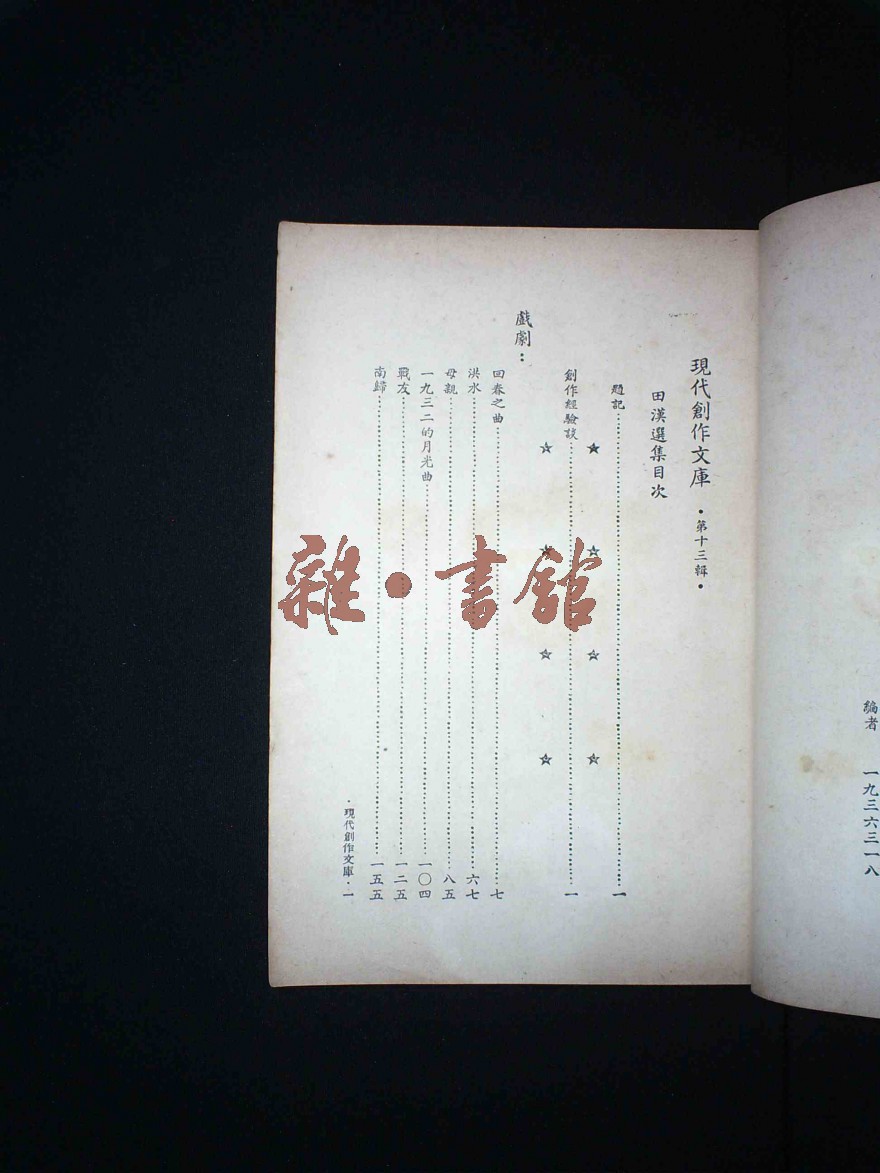 編者 一九三六三一八
現代創作文庫 •第十三輯•
田漢選集目次
題記……一
創作經驗談……一
戲劇：
回春之曲……七
洪水……六七
母親……八五
一九三二的月光曲……一〇四
戰友……一二五
南歸……一五五
•現代創作文庫•一
雜•書館